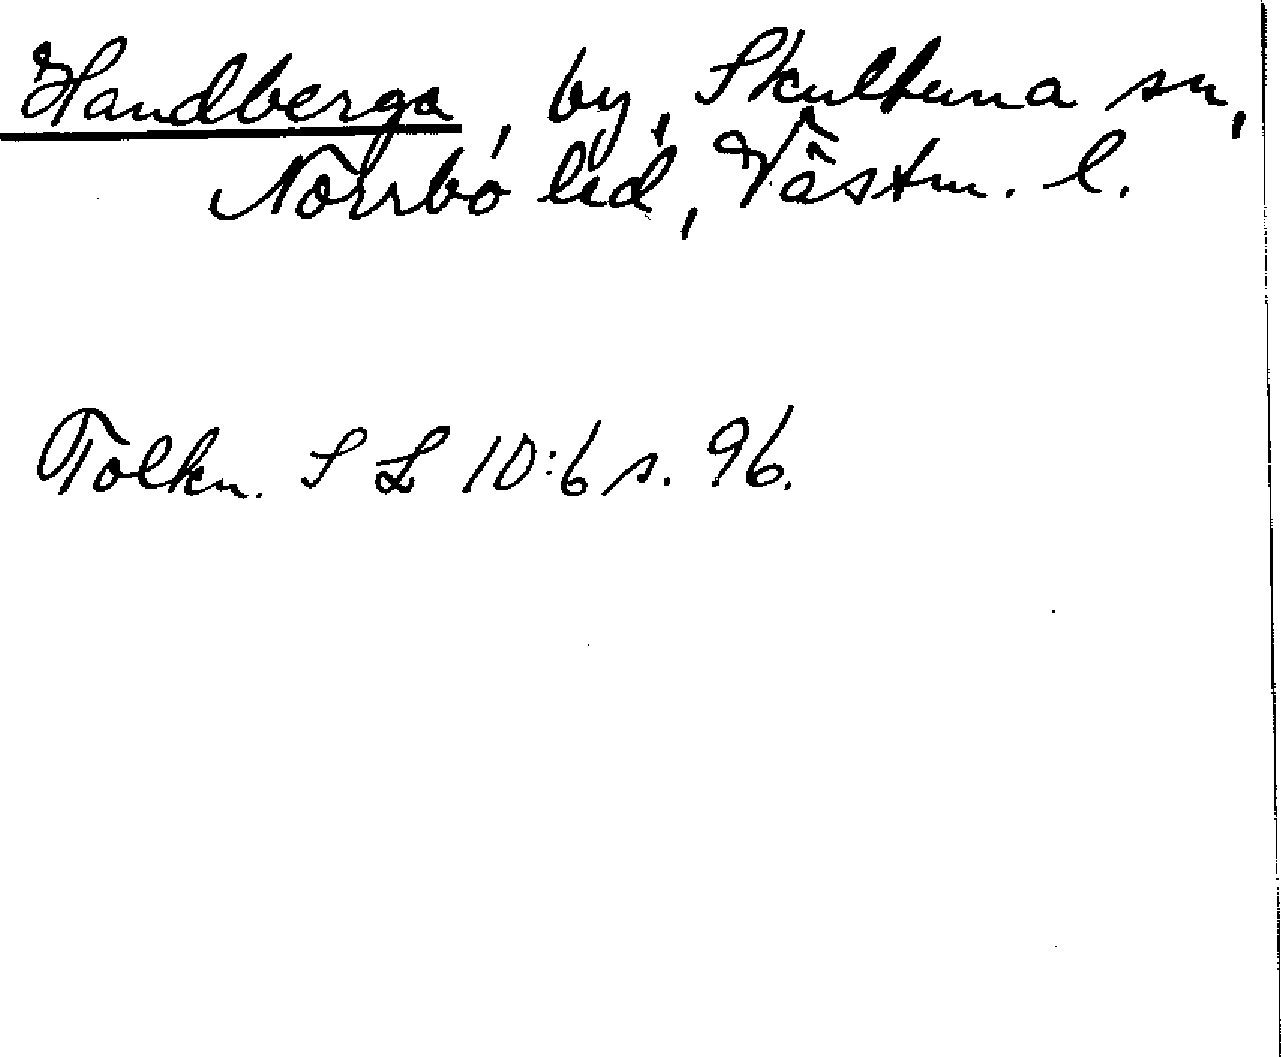 Handberga, by, Skultuna sn,
Norrbo hd, Västm. l.
Tolkn. S L 10:6 s. 96.